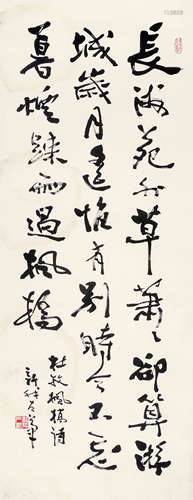 長洲苑外草蕭々卻算游
城歲月遙惟有別時今不忘
暮煙踈雨過楓橋
杜牧楓橋詩